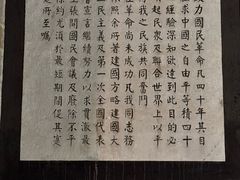 力國民革命凡四十年其目
求中國之自由平等積四十
經驗深知欲達到此目的必
民眾及聯合世界上以平
我之民族共同奮鬥
革命尚未成功凡我同志務
照余所著建國方略建國大
民主義及第一次全國代表
會宣言繼續努力以求貫徹最
開國民會議及廢除不平
約尤須於最短期間促其實
是所至囑